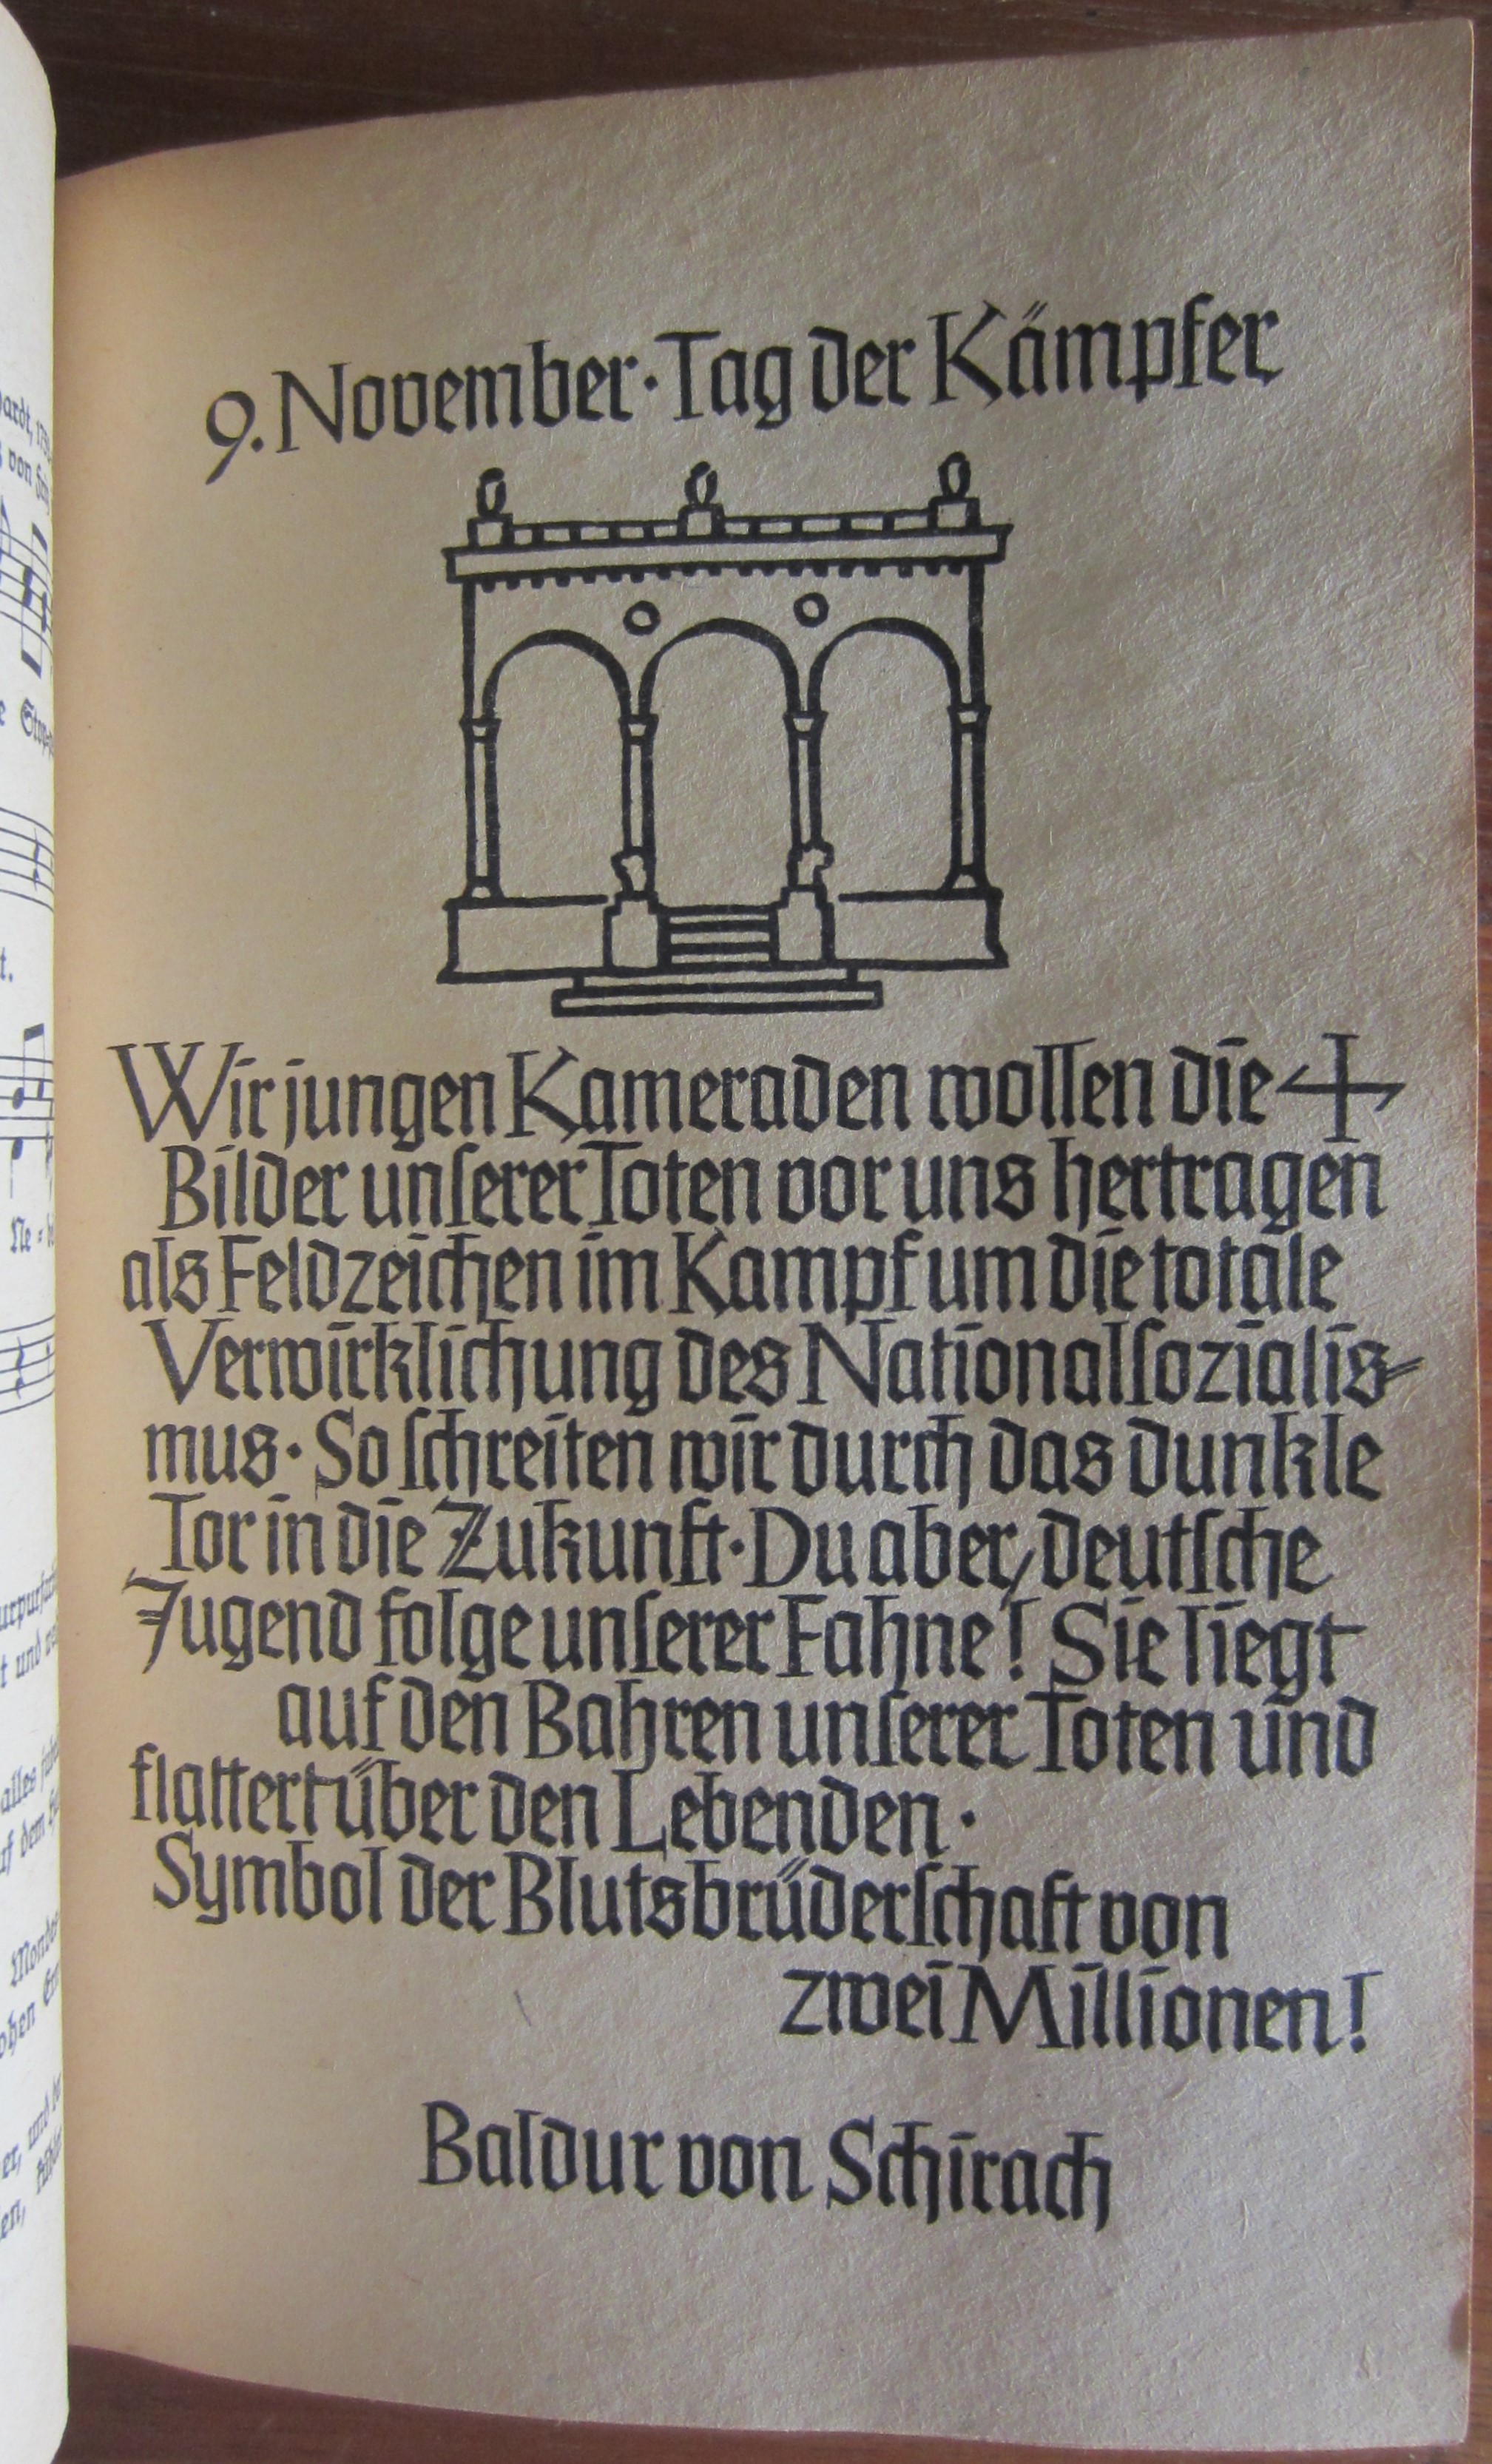 9. November · Tag der Kämpfer
Wir jungen Kameraden wollen die
Bilder unserer Toten vor uns hertragen
als Feldzeichen im Kampf um die totale
Verwirklichung des Nationalsozialis-
mus · So schreiten wir durch das dunkle
Tor in die Zukunft · Du aber, deutsche
Jugend folge unserer Fahne! Sie liegt
auf den Bahren unserer Toten und
flattert über den Lebenden ·
Symbol der Blutsbrüderschaft von
zwei Millionen!
Baldur von Schirach